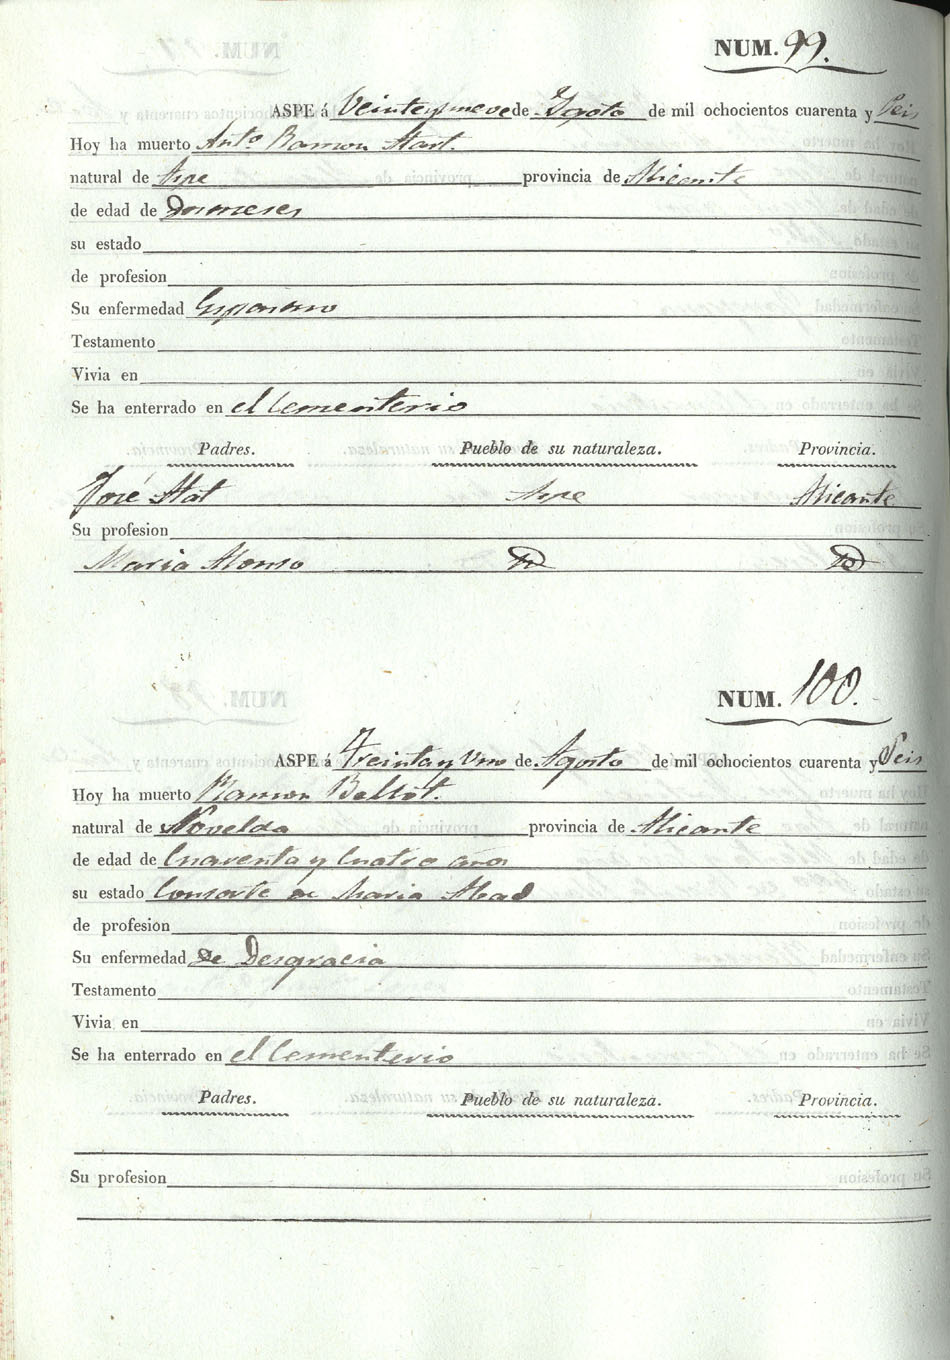 NUM. 99.
ASPE á Veinteynueve de Agosto de mil ochocientos cuarenta y Seis
Hoy ha muerto Antº Ramon
natural de Aspe provincia de Alicante
de edad de Dosmeses
su estado
de profesion
Su enfermedad
Testamento
Vivia en
Se ha enterrado en el Cementerio
Padres. Pueblo de su naturaleza. Provincia.
José Aspe Alicante
Su profesion
Maria Alonso
NUM. 100.
ASPE á Treintayuno de Agosto de mil ochocientos cuarenta y Seis
Hoy ha muerto Ramon Bellot.
natural de Novelda provincia de Alicante
de edad de Cuarenta y Cuatro años
su estado Consorte de Maria Abad
de profesion
Su enfermedad De Desgracia
Testamento
Vivia en
Se ha enterrado en el Cementerio
Padres. Pueblo de su naturaleza. Provincia.
Su profesion